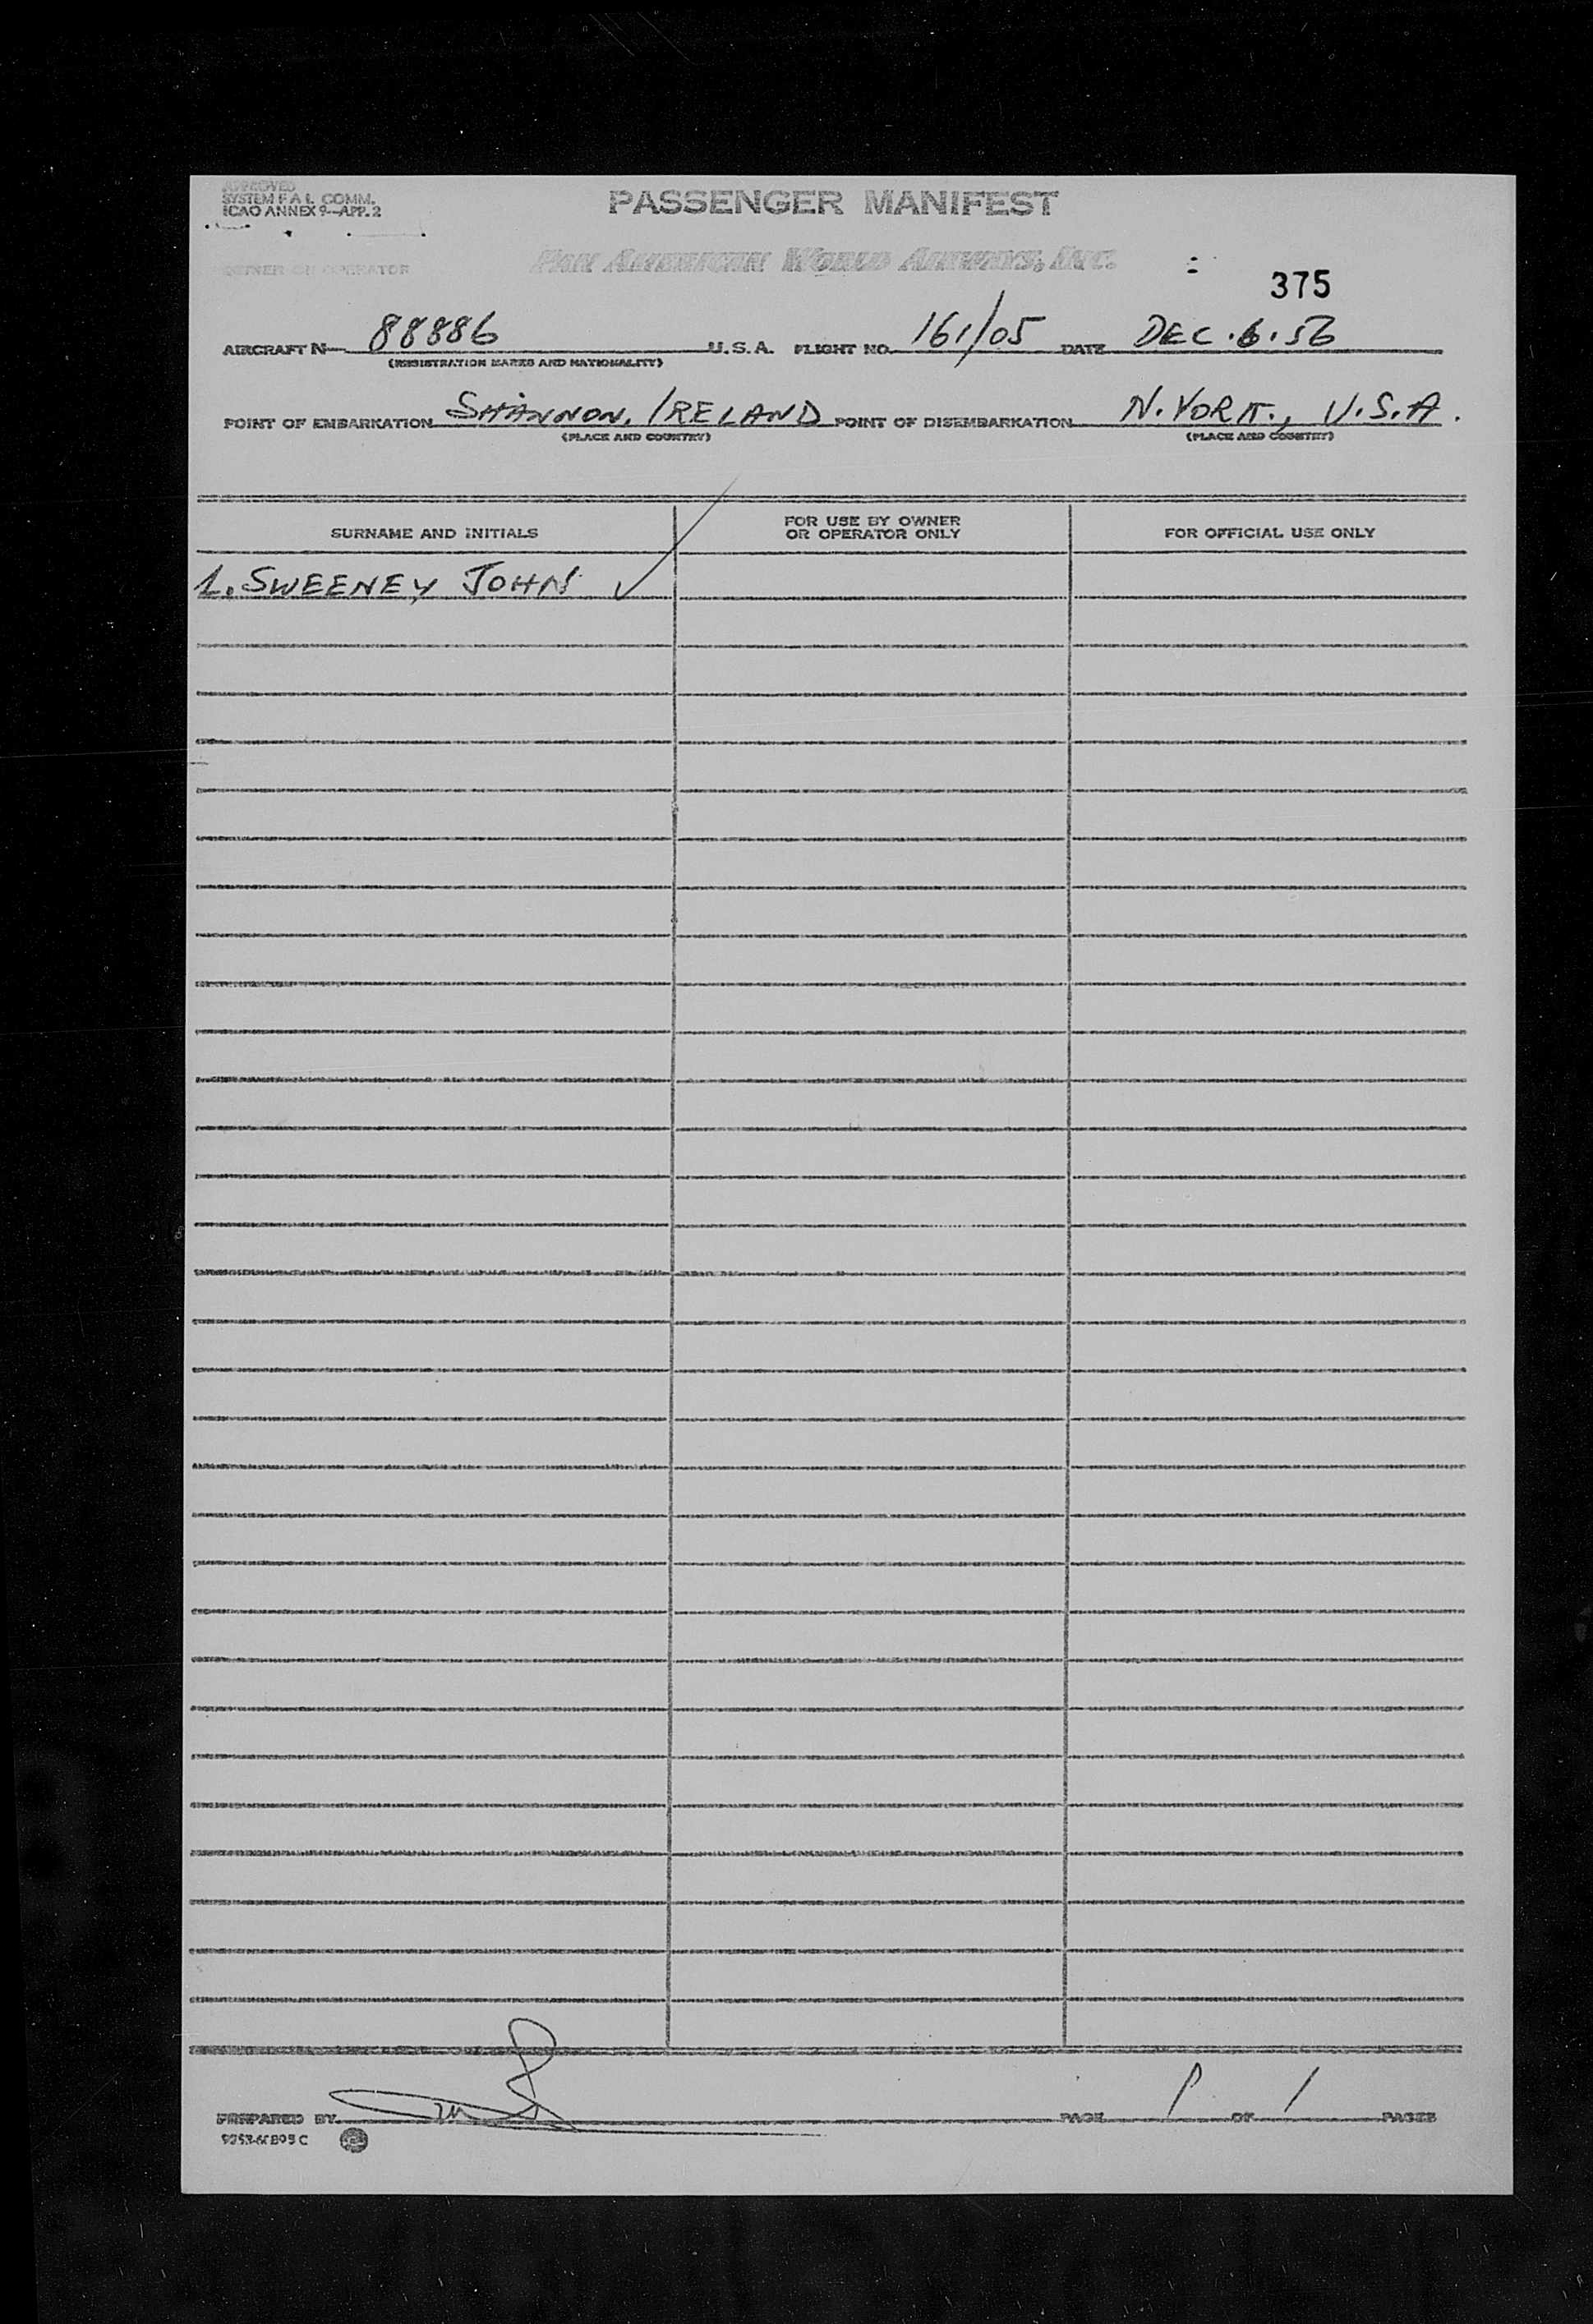 APPROVED
SYSTEM F A L COMM.
ICAO ANNEX 9—APP. 2
PASSENGER MANIFEST
OWNER OR OPERATOR
PAN AMERICAN WORLD AIRWAYS, INC.
375
AIRCRAFT N— 88886 U.S.A. FLIGHT NO. 161/05 DATE DEC. 6. 56
(REGISTRATION MARKS AND NATIONALITY)
POINT OF EMBARKATION SHANNON, IRELAND POINT OF DISEMBARKATION N. YORK., U.S.A.
(PLACE AND COUNTRY) (PLACE AND COUNTRY)
SURNAME AND INITIALS FOR USE BY OWNER OR OPERATOR ONLY FOR OFFICIAL USE ONLY
1. SWEENEY JOHN ✓
PREPARED BY PAGE 1 OF 1 PAGES